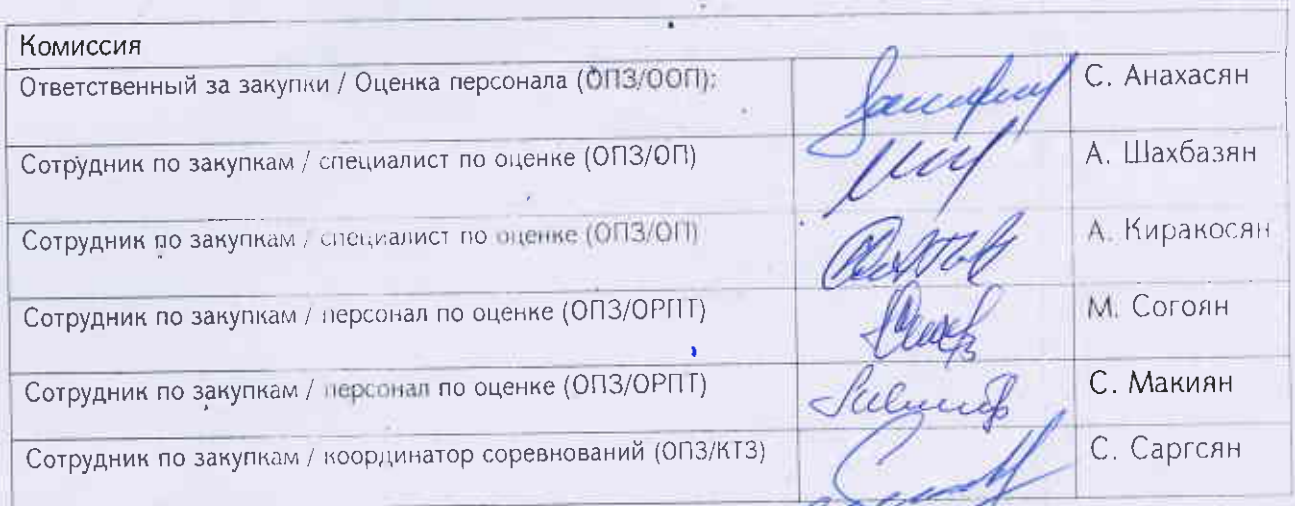 Комиссия
Ответственный за закупки / Оценка персонала (ОПЗ/ООП): С. Анахасян
Сотрудник по закупкам / специалист по оценке (ОПЗ/ОП) А. Шахбазян
Сотрудник по закупкам / специалист по оценке (ОПЗ/ОП) А. Киракосян
Сотрудник по закупкам / персонал по оценке (ОПЗ/ОРПТ) М. Согоян
Сотрудник по закупкам / персонал по оценке (ОПЗ/ОРПТ) С. Макиян
Сотрудник по закупкам / координатор соревнований (ОПЗ/КТЗ) С. Саргсян